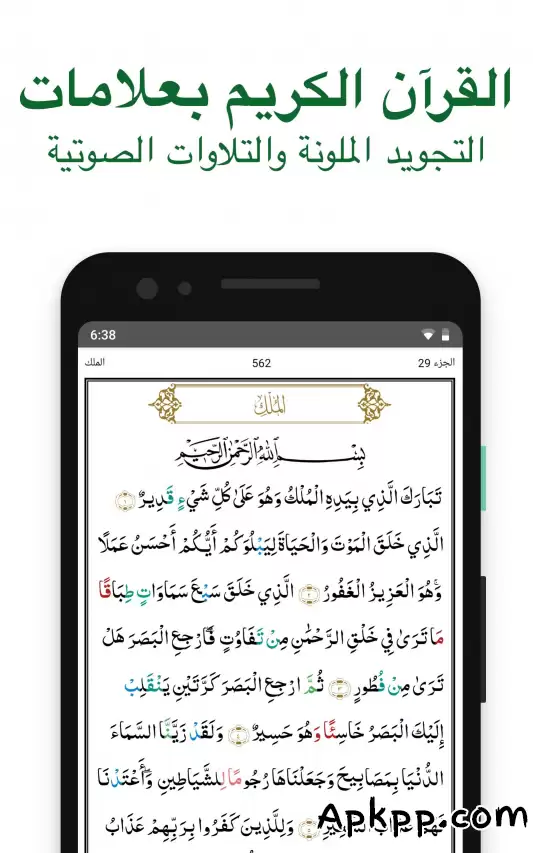 القرآن الكريم بعلامات
التجويد الملونة والتلاوات الصوتية
6:38
الجزء 29 562 الملك
الملك
بِسْمِ اللَّهِ الرَّحْمَٰنِ الرَّحِيمِ
تَبَارَكَ الَّذِي بِيَدِهِ الْمُلْكُ وَهُوَ عَلَىٰ كُلِّ شَيْءٍ قَدِيرٌ ١
الَّذِي خَلَقَ الْمَوْتَ وَالْحَيَاةَ لِيَبْلُوَكُمْ أَيُّكُمْ أَحْسَنُ عَمَلًا
وَهُوَ الْعَزِيزُ الْغَفُورُ ٢ الَّذِي خَلَقَ سَبْعَ سَمَاوَاتٍ طِبَاقًا
مَا تَرَىٰ فِي خَلْقِ الرَّحْمَٰنِ مِنْ تَفَاوُتٍ فَارْجِعِ الْبَصَرَ هَلْ
تَرَىٰ مِنْ فُطُورٍ ٣ ثُمَّ ارْجِعِ الْبَصَرَ كَرَّتَيْنِ يَنْقَلِبْ
إِلَيْكَ الْبَصَرُ خَاسِئًا وَهُوَ حَسِيرٌ ٤ وَلَقَدْ زَيَّنَّا السَّمَاءَ
الدُّنْيَا بِمَصَابِيحَ وَجَعَلْنَاهَا رُجُومًا لِلشَّيَاطِينِ وَأَعْتَدْنَا
لَهُمْ عَذَابَ السَّعِيرِ ٥ وَلِلَّذِينَ كَفَرُوا بِرَبِّهِمْ عَذَابُ
Apkpp.com